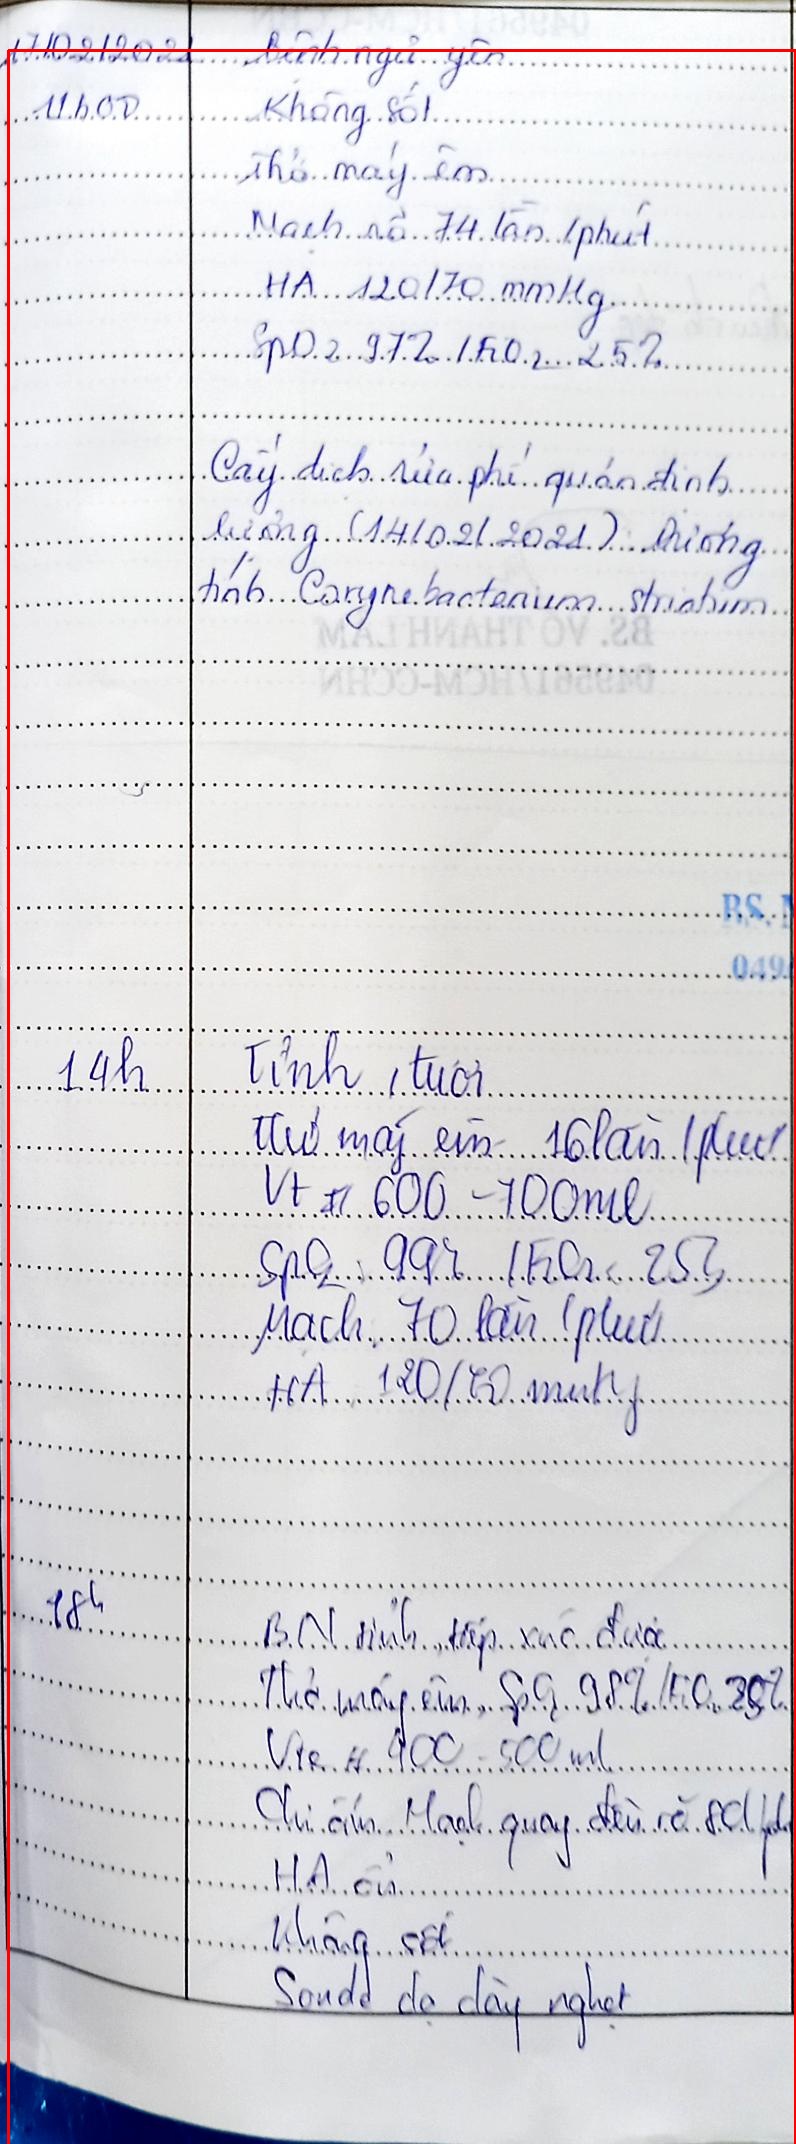 17/02/2021 Bệnh ngủ yên
11h00 Không sốt
Thở máy êm
Mạch rõ 74 lần/phút
HA 120/70 mmHg
SpO2 97% / FiO2 25%
Cấy dịch rửa phế quản định
lượng (14/02/2021) Dương
tính Corynebacterium striatum
BS. VÕ THANH LÂM
049561/HCM-CCHN
BS.
049
14h Tỉnh, tươi
Thở máy êm 16 lần/phút
Vt # 600 - 700ml
SpO2 99% / FiO2 25%
Mạch 70 lần/phút
HA 120/70 mmHg
18h BN tỉnh, tiếp xúc được
Thở máy êm, SpO2 98% / FiO2 25%
Vte # 400 - 500 ml
Chi ấm Mạch quay đều rõ 80l/ph
HA ổn
Không sốt
Sonde dạ dày nghẹt